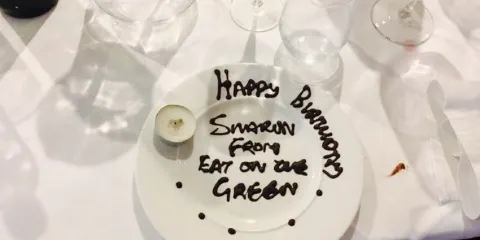 HAPPY BIRTHDAY
SHARON
FROM
EAT ON THE
GREEN